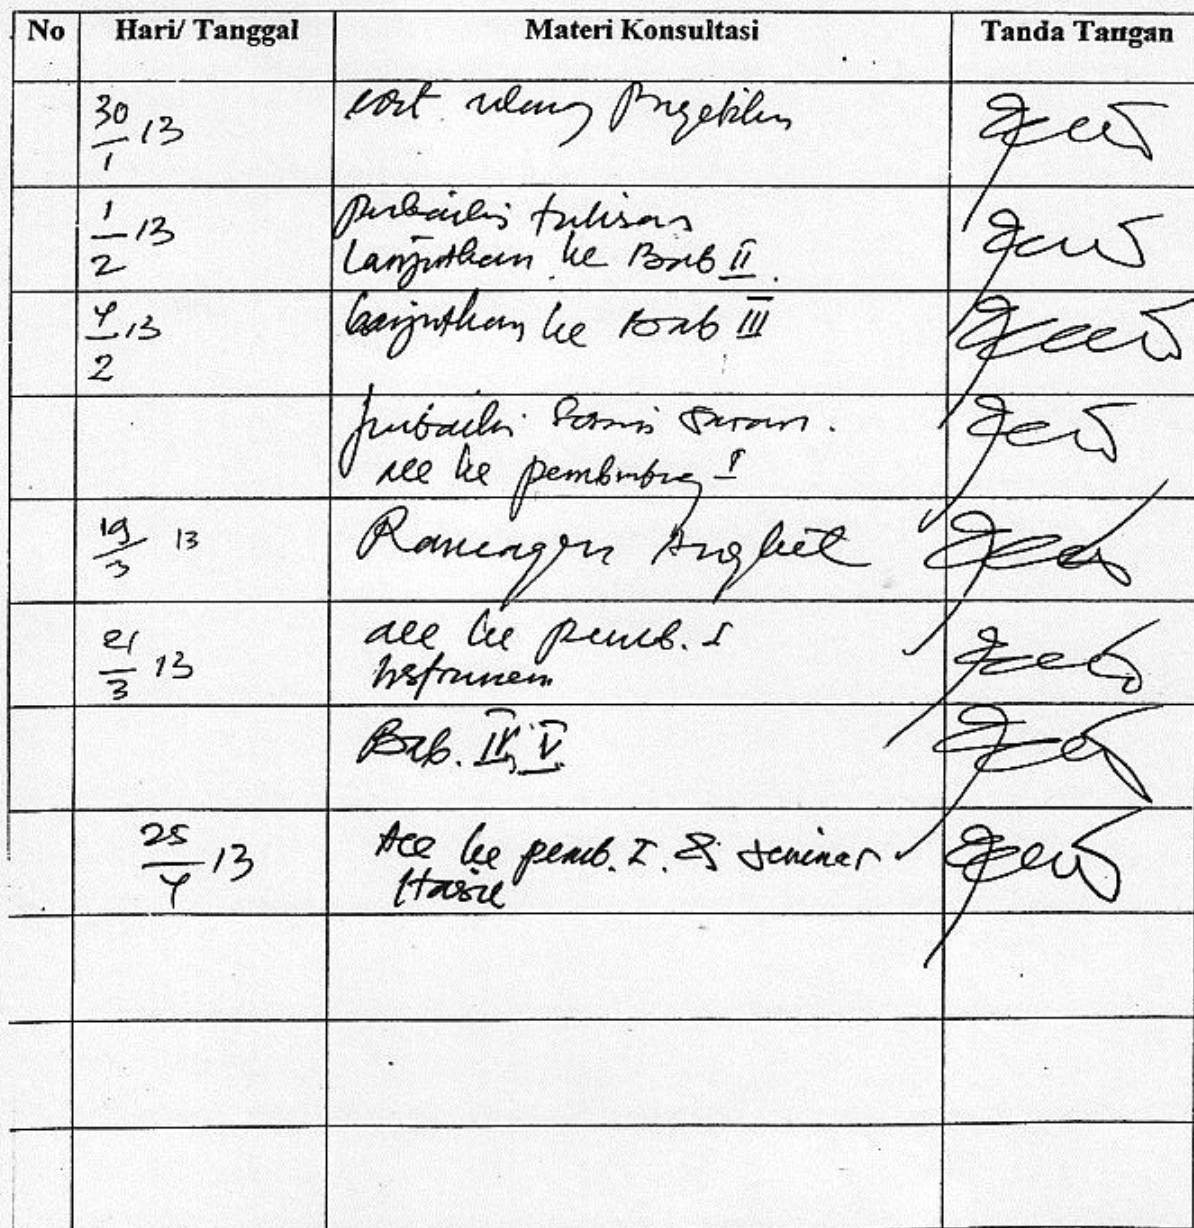 No Hari/ Tanggal Materi Konsultasi Tanda Tangan
30/1 13 ulang
1/2 13 perbaiki tulisan
Lanjutkan ke Bab II
4/2 13 Lanjutkan ke Bab III
perbaiki saran.
acc ke pembimbing I
19/3 13 Rancangan Angket
21/3 13 acc ke pemb. I
Instrumen
Bab. IV, V
25/4 13 Acc ke pemb. I. & seminar
Hasil